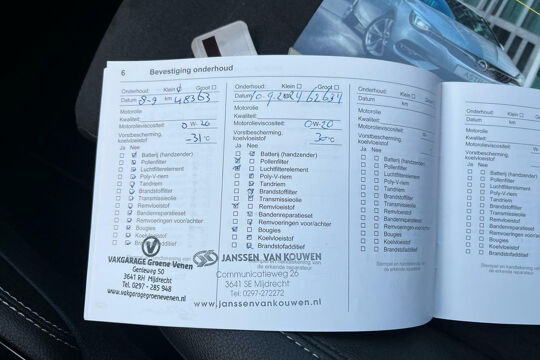 6 Bevestiging onderhoud
Onderhoud: Klein Groot
Datum 8-9 km 48363
Motorolie
Kwaliteit:
Motorolieviscositeit: 0W-20
Vorstbescherming,
koelvloeistof -31°C
Ja Nee
Batterij (handzender)
Pollenfilter
Luchtfilterelement
Poly-V-riem
Tandriem
Brandstoffilter
Transmissieolie
Remvloeistof
Bandenreparatieset
Remvoeringen voor/achter
Bougies
Koelvloeistof
Brandstofadditief
VAKGARAGE Groene Venen
Genieweg 50
3641 RH Mijdrecht
Tel. 0297 - 285 948
www.vakgaragegroenevenen.nl
Onderhoud: Klein Groot
Datum 10.9.2024 62634
Motorolie
Kwaliteit:
Motorolieviscositeit: 0W-20
Vorstbescherming,
koelvloeistof 30°C
Ja Nee
Batterij (handzender)
Pollenfilter
Luchtfilterelement
Poly-V-riem
Tandriem
Brandstoffilter
Transmissieolie
Remvloeistof
Bandenreparatieset
Remvoeringen voor/achter
Bougies
Koelvloeistof
Brandstofadditief
Stempel en handtekening van
de erkende reparateur
JANSSEN VAN KOUWEN
Communicatieweg 26
3641 SE Mijdrecht
Tel: 0297-272272
www.janssenvankouwen.nl
Onderhoud: Klein Groot
Datum km
Motorolie
Kwaliteit:
Motorolieviscositeit:
Vorstbescherming,
koelvloeistof
Ja Nee
Batterij (handzender)
Pollenfilter
Luchtfilterelement
Poly-V-riem
Tandriem
Brandstoffilter
Transmissieolie
Remvloeistof
Bandenreparatieset
Remvoeringen voor/achter
Bougies
Koelvloeistof
Brandstofadditief
Stempel en handtekening van
de erkende reparateur